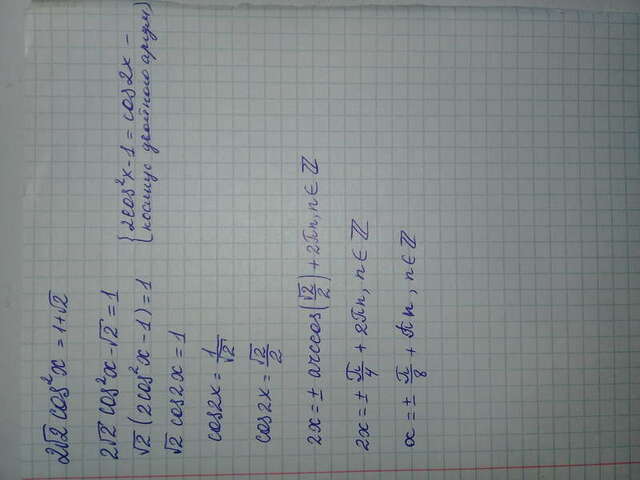 2√2 cos²x = 1+√2
2√2 cos²x - √2 = 1
√2 (2cos²x - 1) = 1
{2cos²x - 1 = cos2x -
косинус двойного аргум}
√2 cos2x = 1
cos2x = 1/√2
cos2x = √2/2
2x = ± arccos(√2/2) + 2πn, n ∈ ℤ
2x = ± π/4 + 2πn, n ∈ ℤ
x = ± π/8 + πn, n ∈ ℤ